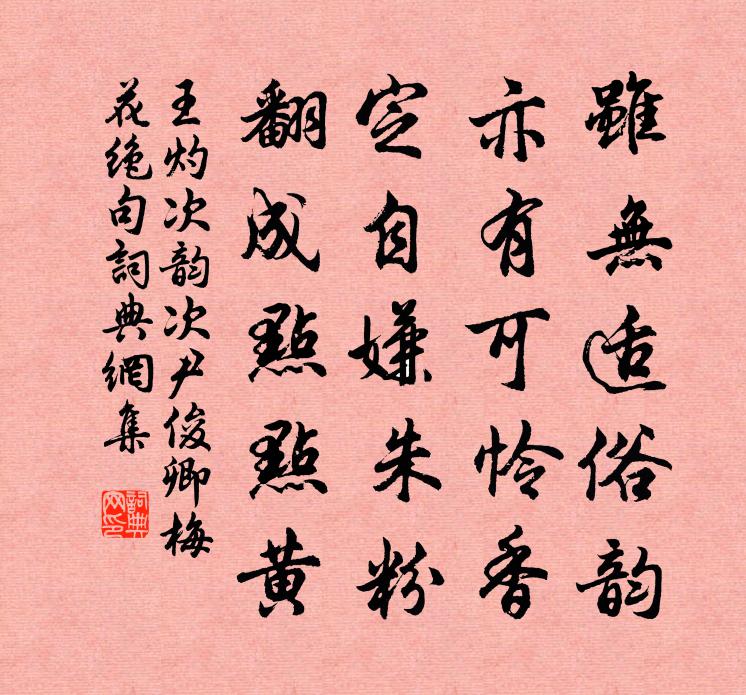 雖無适俗韵
亦有可怜香
定自嫌朱粉
翻成點點黄
王灼次韵次尹俊卿梅
花绝句詞典網集
詞典网印